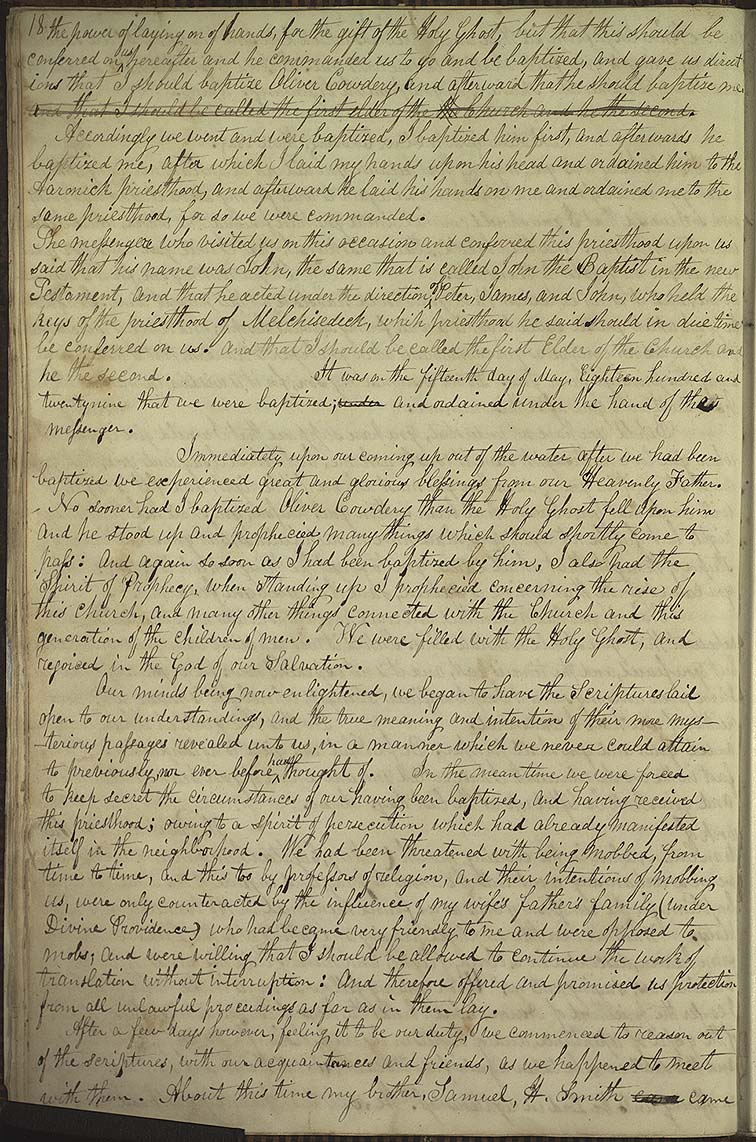 18 the power of laying on of hands, for the gift of the Holy Ghost, but that this should be
conferred on us hereafter and he commanded us to go and be baptized, and gave us direct
ions that I should baptize Oliver Cowdery, and afterward that he should baptize me
and that I should be called the first elder of the Church and he the second.
Accordingly we went and were baptized, I baptized him first, and afterwards he
baptized me, after which I laid my hands upon his head and ordained him to the
Aaronick priesthood, and afterward he laid his hands on me and ordained me to the
same priesthood, for so we were commanded.
The messenger who visited us on this occasion and conferred this priesthood upon us
said that his name was John, the same that is called John the Baptist in the new
Testament, and that he acted under the direction of Peter, James, and John, who held the
keys of the priesthood of Melchisedeck, whith priesthood he said should in due time
be conferred on us. And that I should be called the first Elder of the Church and
he the second. It was on the fifteenth day of May, Eighteen hundred and
twentynine that we were baptized; under and ordained under the hand of the
messenger.
Immediately upon our coming up out of the water after we had been
baptized we experienced great and glorious blessings from our Heavenly Father.
No sooner had I baptized Oliver Cowdery than the Holy Ghost fell upon him
and he stood up and prophecied many things which should shortly come to
pass: And again so soon as I had been baptized by him, I also had the
Spirit of Prophecy, when standing up I prophecied concerning the rise of
this church, and many other things connected with the Church and this
generation of the children of men. We were filled with the Holy Ghost, and
rejoiced in the God of our Salvation.
Our minds being now enlightened, we began to have the Scriptures laid
open to our understandings, and the true meaning and intention of their more mys-
-terious passages revealed unto us, in a manner which we never could attain
to previously, nor ever before had thought of. In the mean time we were forced
to keep secret the circumstances of our having been baptized, and having received
this priesthood; owing to a spirit of persecution which had already manifested
itself in the neighborhood. We had been threatened with being mobbed, from
time to time, and this too by professors of religion, and their intentions of mobbing
us, were only counteracted by the influence of my wife's father's family (under
Divine Providence) who had became very friendly to me and were opposed to
mobs; and were willing that I should be allowed to continue the work of
translation without interruption: And therefore offered and promised us protection
from all unlawful proceedings as far as in them lay.
After a few days however, feeling it to be our duty, we commenced to reason out
of the scriptures, with our acquaintances and friends, as we happened to meet
with them. About this time my brother, Samuel, H. Smith came came